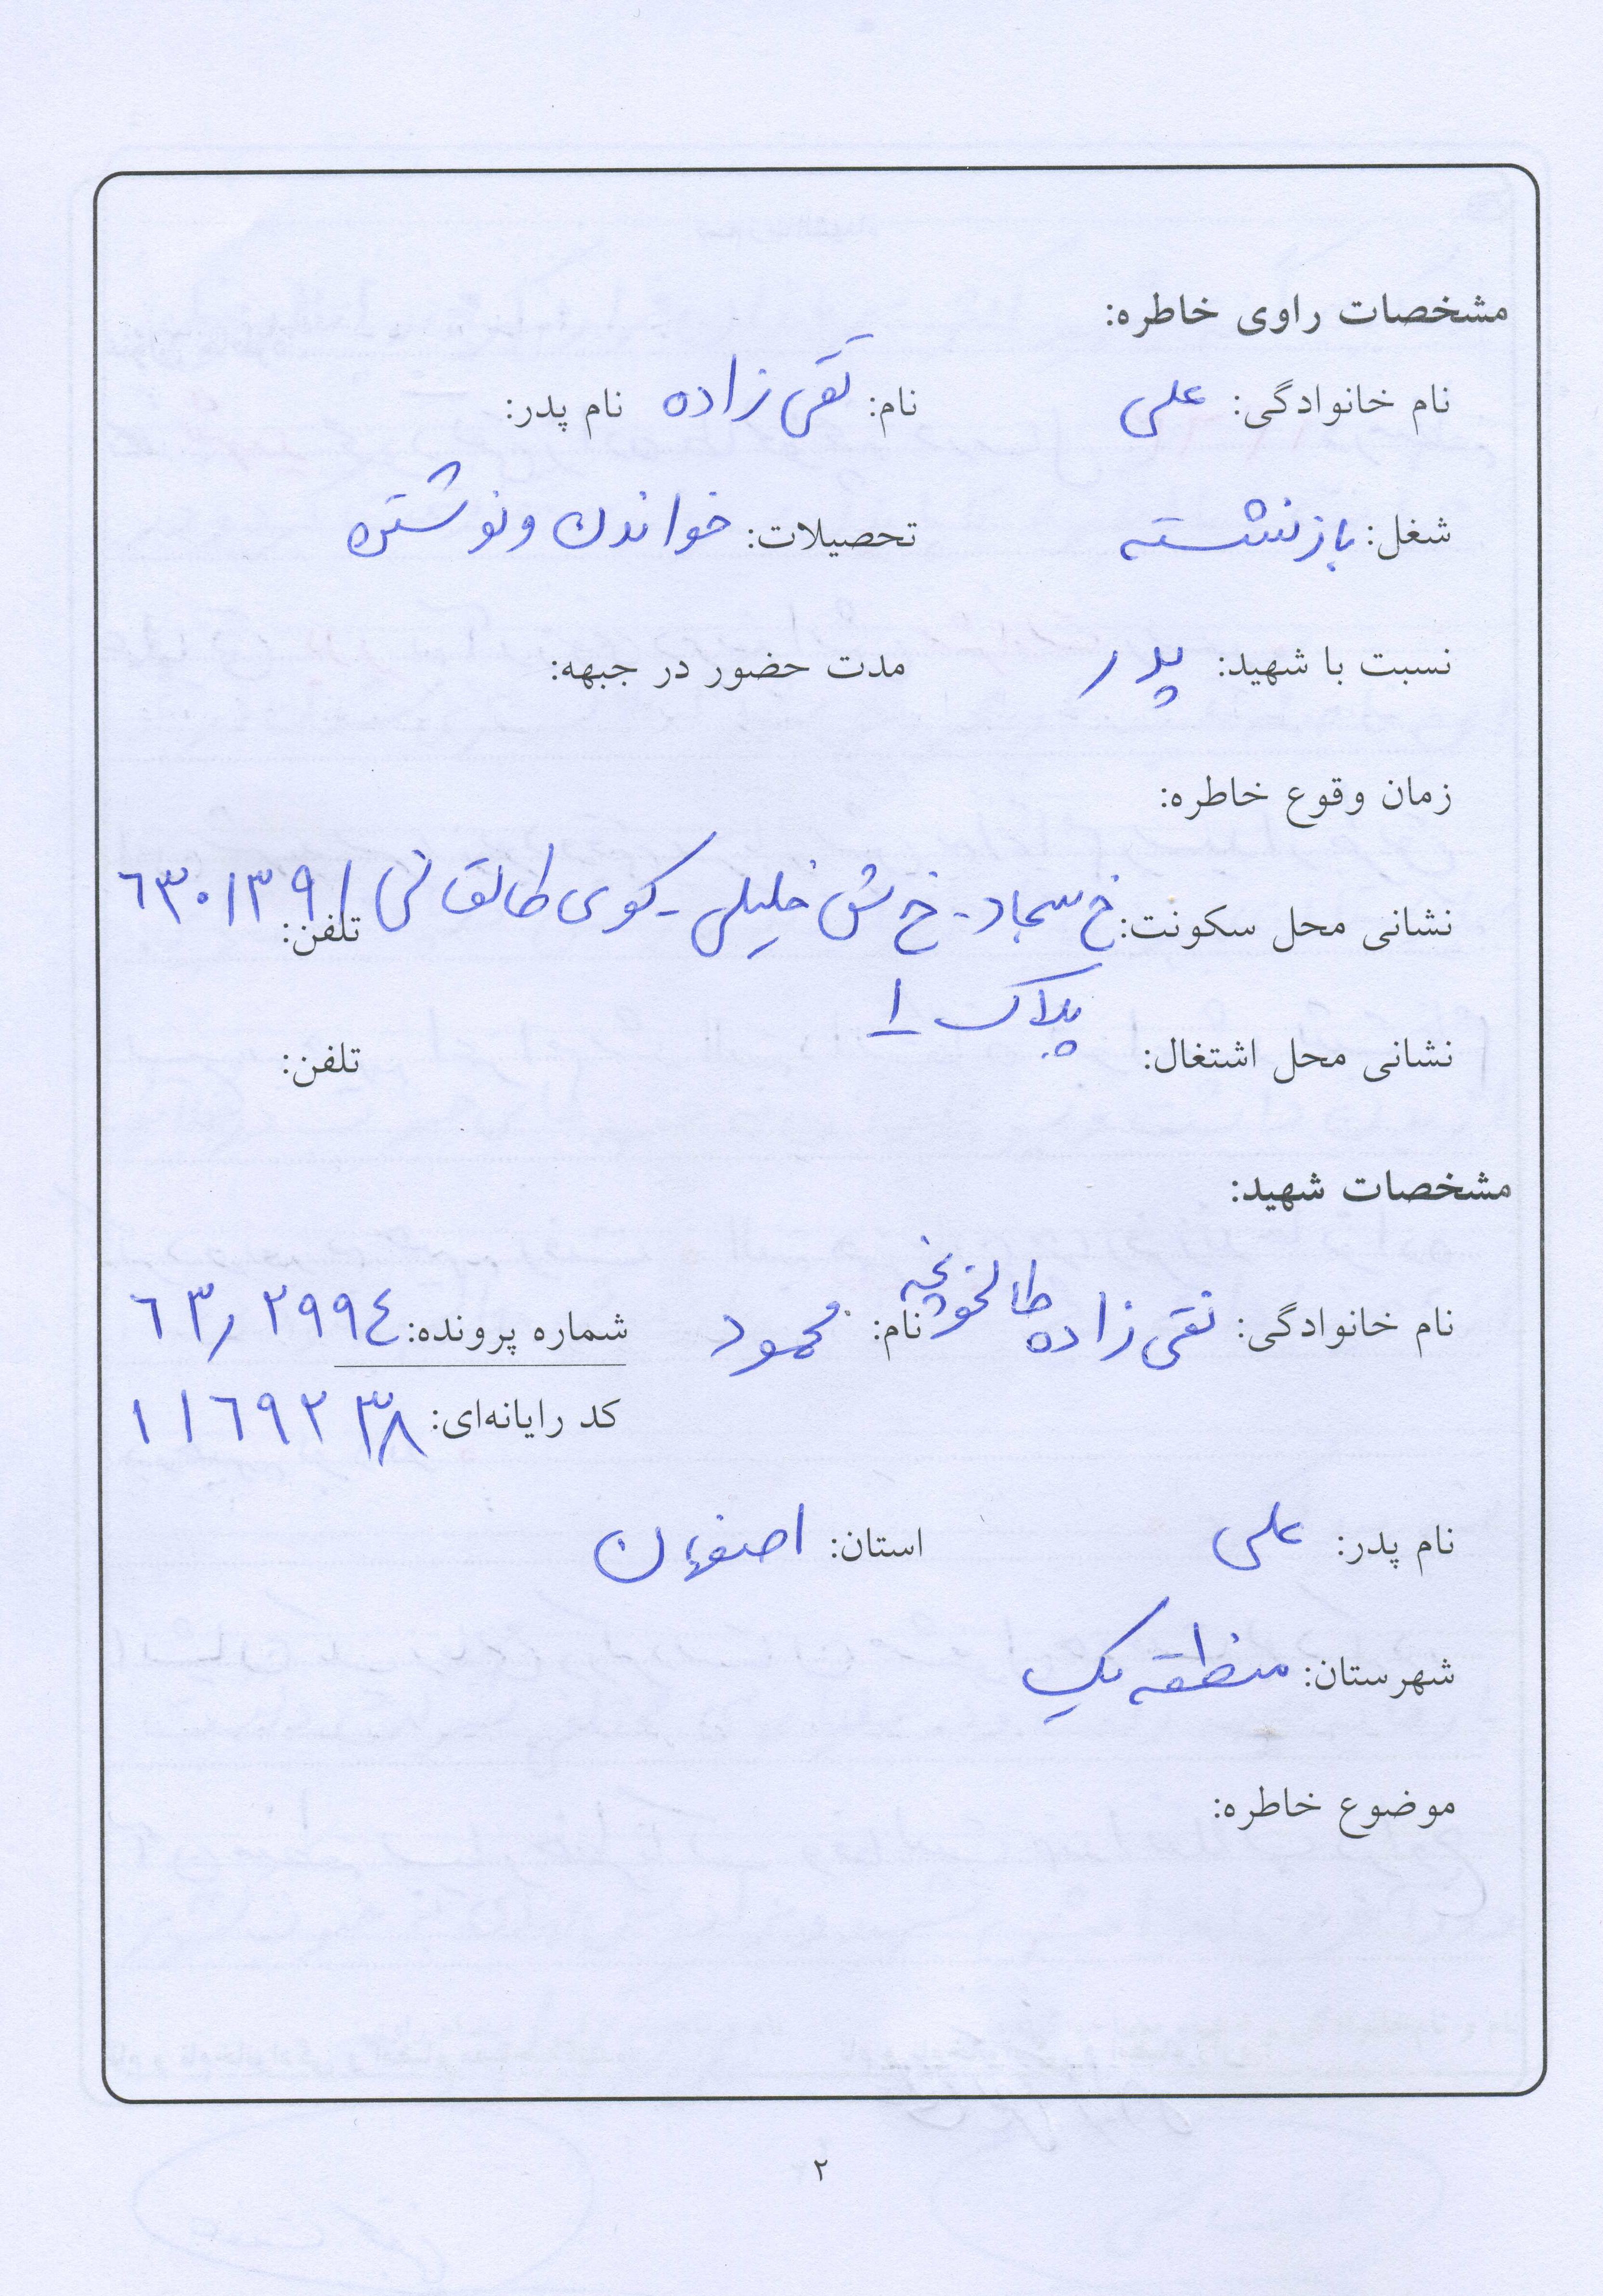 مشخصات راوی خاطره:
نام خانوادگی: علی نام: تقی زاده نام پدر:
شغل: بازنشسته تحصیلات: خواندن و نوشتن
نسبت با شهید: پدر مدت حضور در جبهه:
زمان وقوع خاطره:
نشانی محل سکونت: خ سجاد - خ ش خلیلی - کوی طالقانی تلفن: ٦٣٠١٣٩١
پلاک ١
نشانی محل اشتغال: تلفن:
مشخصات شهید:
نام خانوادگی: تقی زاده طالخونچه نام: محمود شماره پرونده: ٦٣٫٢٩٩٤
کد رایانه‌ای: ١١٦٩٢٣٨
نام پدر: علی استان: اصفهان
شهرستان: منطقه یک
موضوع خاطره:
۲